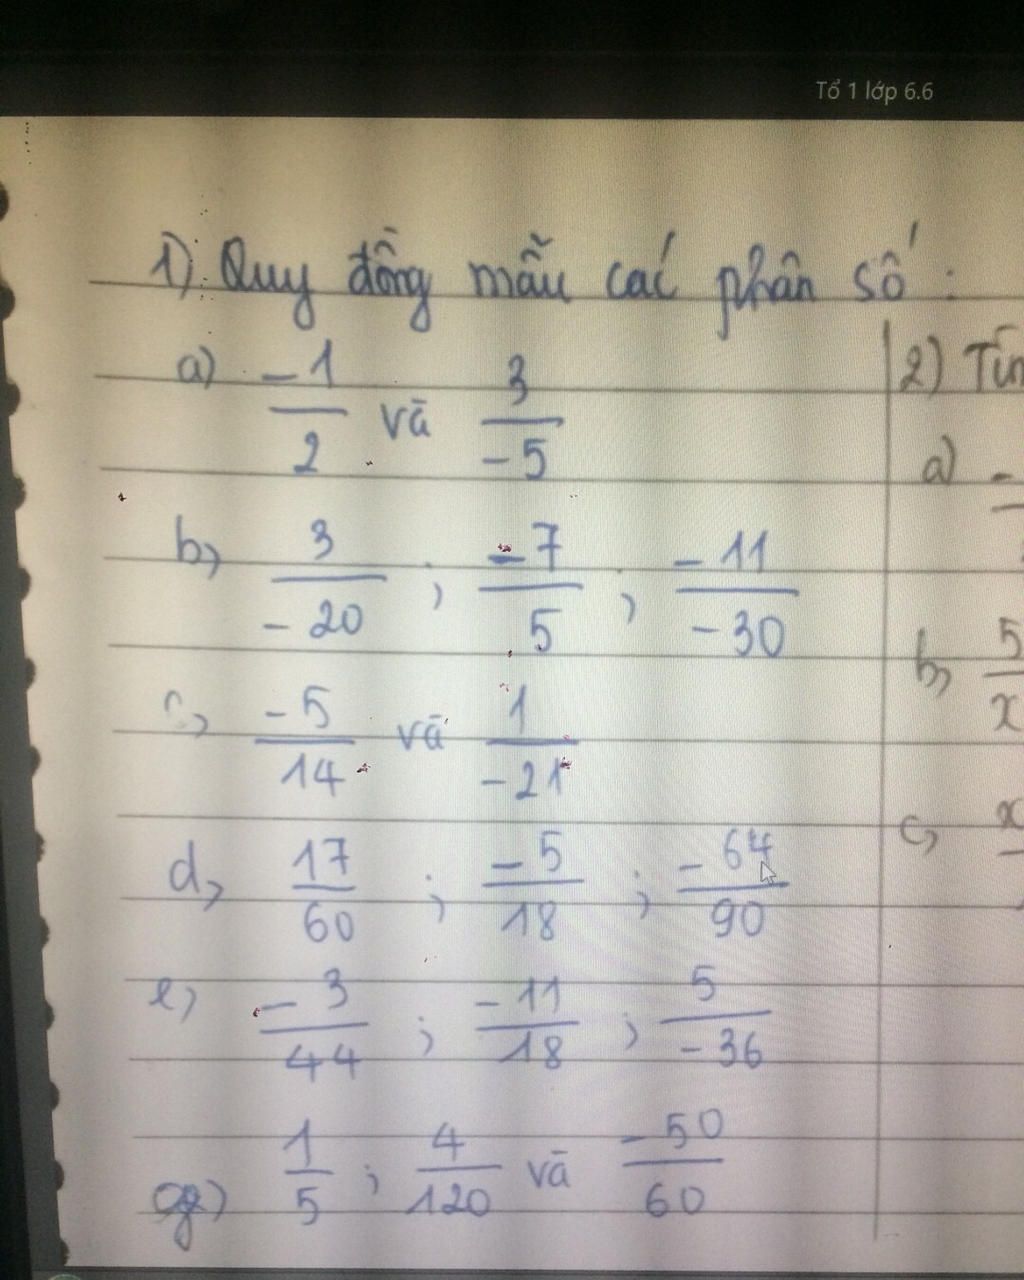 Tổ 1 lớp 6.6
1) Quy đồng mẫu các phân số:
a) -1/2 và 3/-5
b) 3/-20 ; -7/5 ; -11/-30
c) -5/14 và 1/-21
d) 17/60 ; -5/18 ; -64/90
e) -3/44 ; -11/18 ; 5/-36
g) 1/5 ; 4/120 và -50/60
2)
a)
b) 5/x
c) x